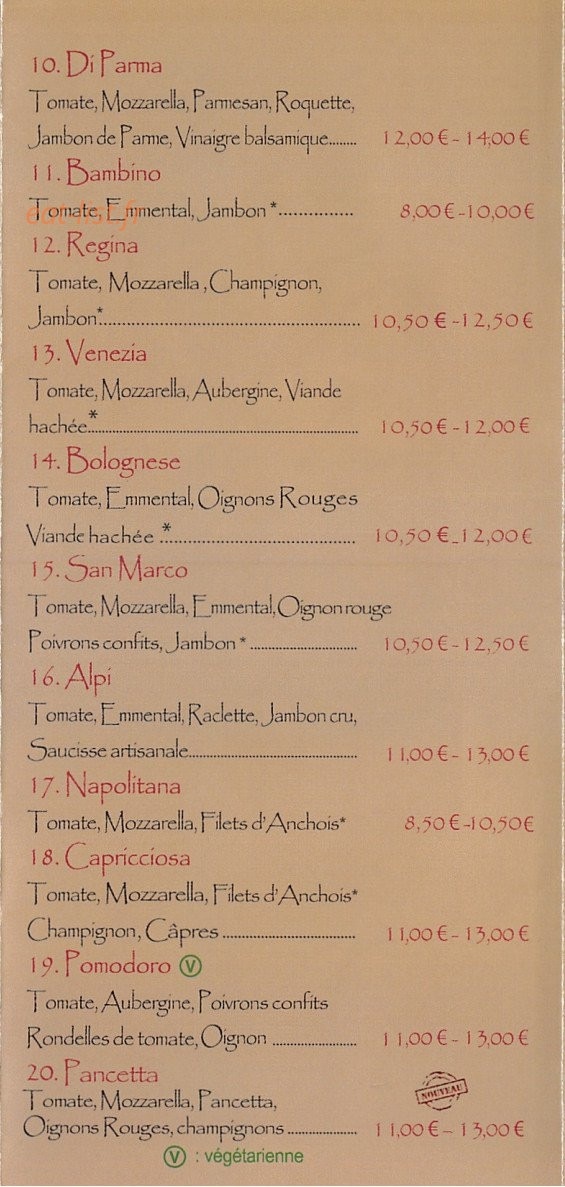 10. Di Parma
Tomate, Mozzarella, Parmesan, Roquette,
Jambon de Parme, Vinaigre balsamique........ 12,00 € - 14,00 €
11. Bambino
Tomate, Emmental, Jambon *............... 8,00 € -10,00 €
12. Regina
Tomate, Mozzarella , Champignon,
Jambon*.................................................... 10,50 € -12,50 €
13. Venezia
Tomate, Mozzarella, Aubergine, Viande
hachée*.................................................... 10,50 € - 12,00 €
14. Bolognese
Tomate, Emmental, Oignons Rouges
Viande hachée *...................................... 10,50 € - 12,00 €
15. San Marco
Tomate, Mozzarella, Emmental, Oignon rouge
Poivrons confits, Jambon * ............................ 10,50 € - 12,50 €
16. Alpi
Tomate, Emmental, Raclette, Jambon cru,
Saucisse artisanale............................................ 11,00 € - 13,00 €
17. Napolitana
Tomate, Mozzarella, Filets d'Anchois* 8,50 € -10,50€
18. Capricciosa
Tomate, Mozzarella, Filets d'Anchois*
Champignon, Câpres ................................... 11,00 € - 13,00 €
19. Pomodoro V
Tomate, Aubergine, Poivrons confits
Rondelles de tomate, Oignon ...................... 11,00 € - 13,00 €
20. Pancetta
NOUVEAU
Tomate, Mozzarella, Pancetta,
Oignons Rouges, champignons .................. 11,00 € - 13,00 €
V : végétarienne